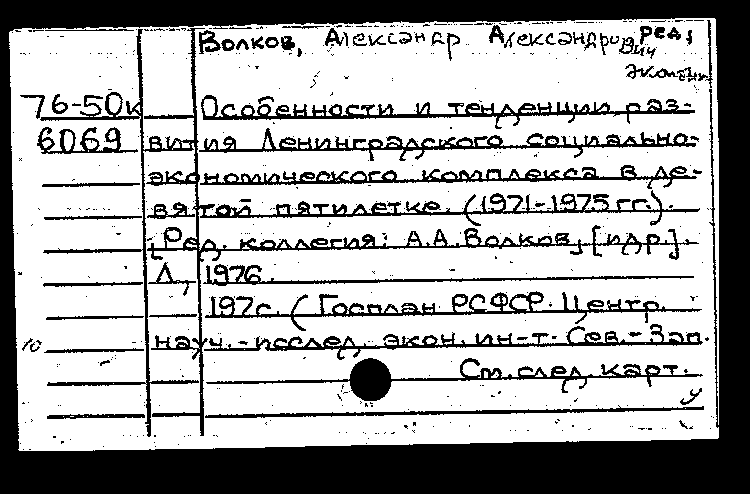 Волков, Александр Александрович ред,
экон
76-50к Особенности и тенденции раз-
6069 вития Ленинградского социально-
экономического комплекса в де-
вятой пятилетке. (1971-1975 гг.).
[Ред. коллегия: А.А. Волков, [и др.].
Л, 1976.
197с. (Госплан РСФСР. Центр.
10 науч.-исслед. экон. ин-т. Сев.-Зап.
См. след. карт.
у